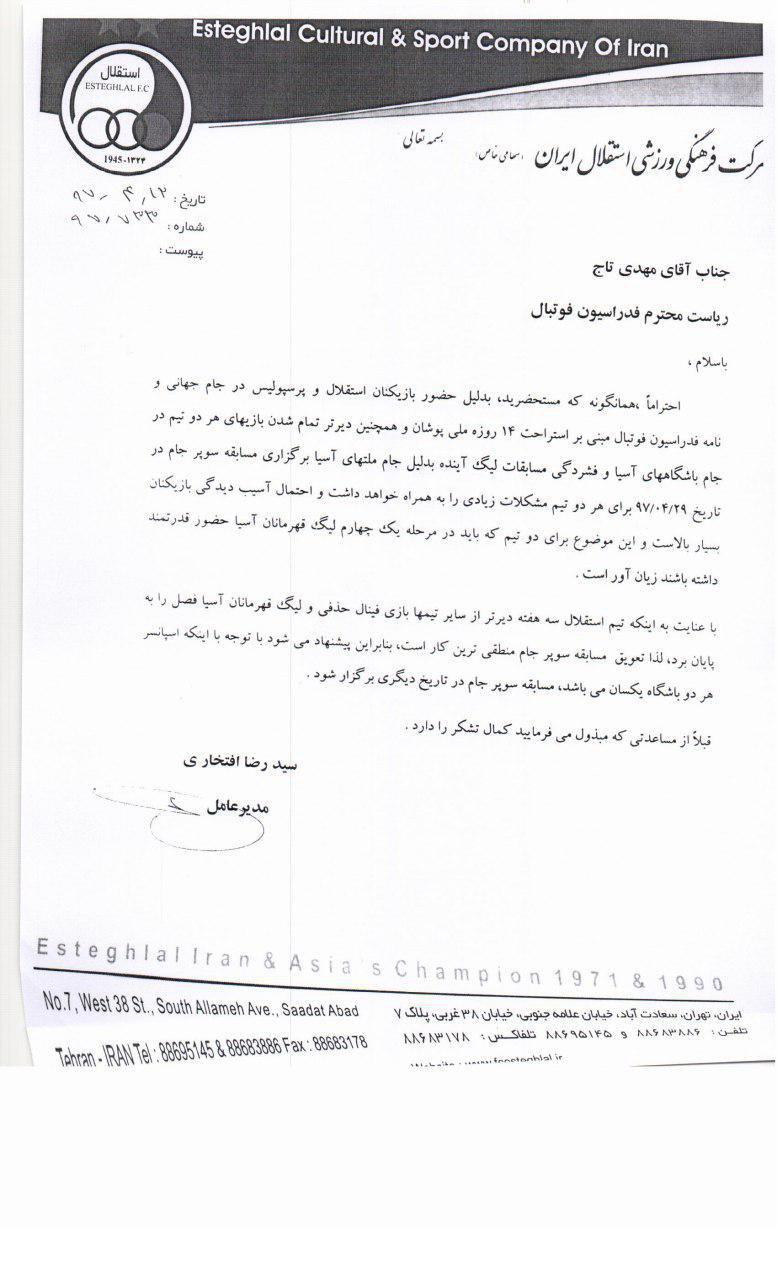 Esteghlal Cultural & Sport Company Of Iran
استقلال
ESTEGHLAL F.C
1945-۱۳۲۴
بسمه تعالی
شرکت فرهنگی ورزشی استقلال ایران (سهامی خاص)
تاریخ: ۹۷،۴،۱۲
شماره: ۹۷،۷۳۳
پیوست:
جناب آقای مهدی تاج
ریاست محترم فدراسیون فوتبال
باسلام ،
احتراماً ،همانگونه که مستحضرید، بدلیل حضور بازیکنان استقلال و پرسپولیس در جام جهانی و
نامه فدراسیون فوتبال مبنی بر استراحت ۱۴ روزه ملی پوشان و همچنین دیرتر تمام شدن بازیهای هر دو تیم در
جام باشگاههای آسیا و فشردگی مسابقات لیگ آینده بدلیل جام ملتهای آسیا برگزاری مسابقه سوپر جام در
تاریخ ۹۷/۰۴/۲۹ برای هر دو تیم مشکلات زیادی را به همراه خواهد داشت و احتمال آسیب دیدگی بازیکنان
بسیار بالاست و این موضوع برای دو تیم که باید در مرحله یک چهارم لیگ قهرمانان آسیا حضور قدرتمند
داشته باشند زیان آور است .
با عنایت به اینکه تیم استقلال سه هفته دیرتر از سایر تیمها بازی فینال حذفی و لیگ قهرمانان آسیا فصل را به
پایان برد، لذا تعویق مسابقه سوپر جام منطقی ترین کار است، بنابراین پیشنهاد می شود با توجه با اینکه اسپانسر
هر دو باشگاه یکسان می باشد، مسابقه سوپر جام در تاریخ دیگری برگزار شود .
قبلاً از مساعدتی که مبذول می فرمایید کمال تشکر را دارد .
سید رضا افتخاری
مدیرعامل
Esteghlal Iran & Asia's Champion 1971 & 1990
No.7, West 38 St., South Allameh Ave., Saadat Abad
Tehran - IRAN Tel : 88695145 & 88683886 Fax : 88683178
ایران، تهران، سعادت آباد، خیابان علامه جنوبی، خیابان ۳۸ غربی، پلاک ۷
تلفن : ۸۸۶۸۳۸۸۶ و ۸۸۶۹۵۱۴۵ تلفاکس : ۸۸۶۸۳۱۷۸
Website : www.fcesteghlal.ir